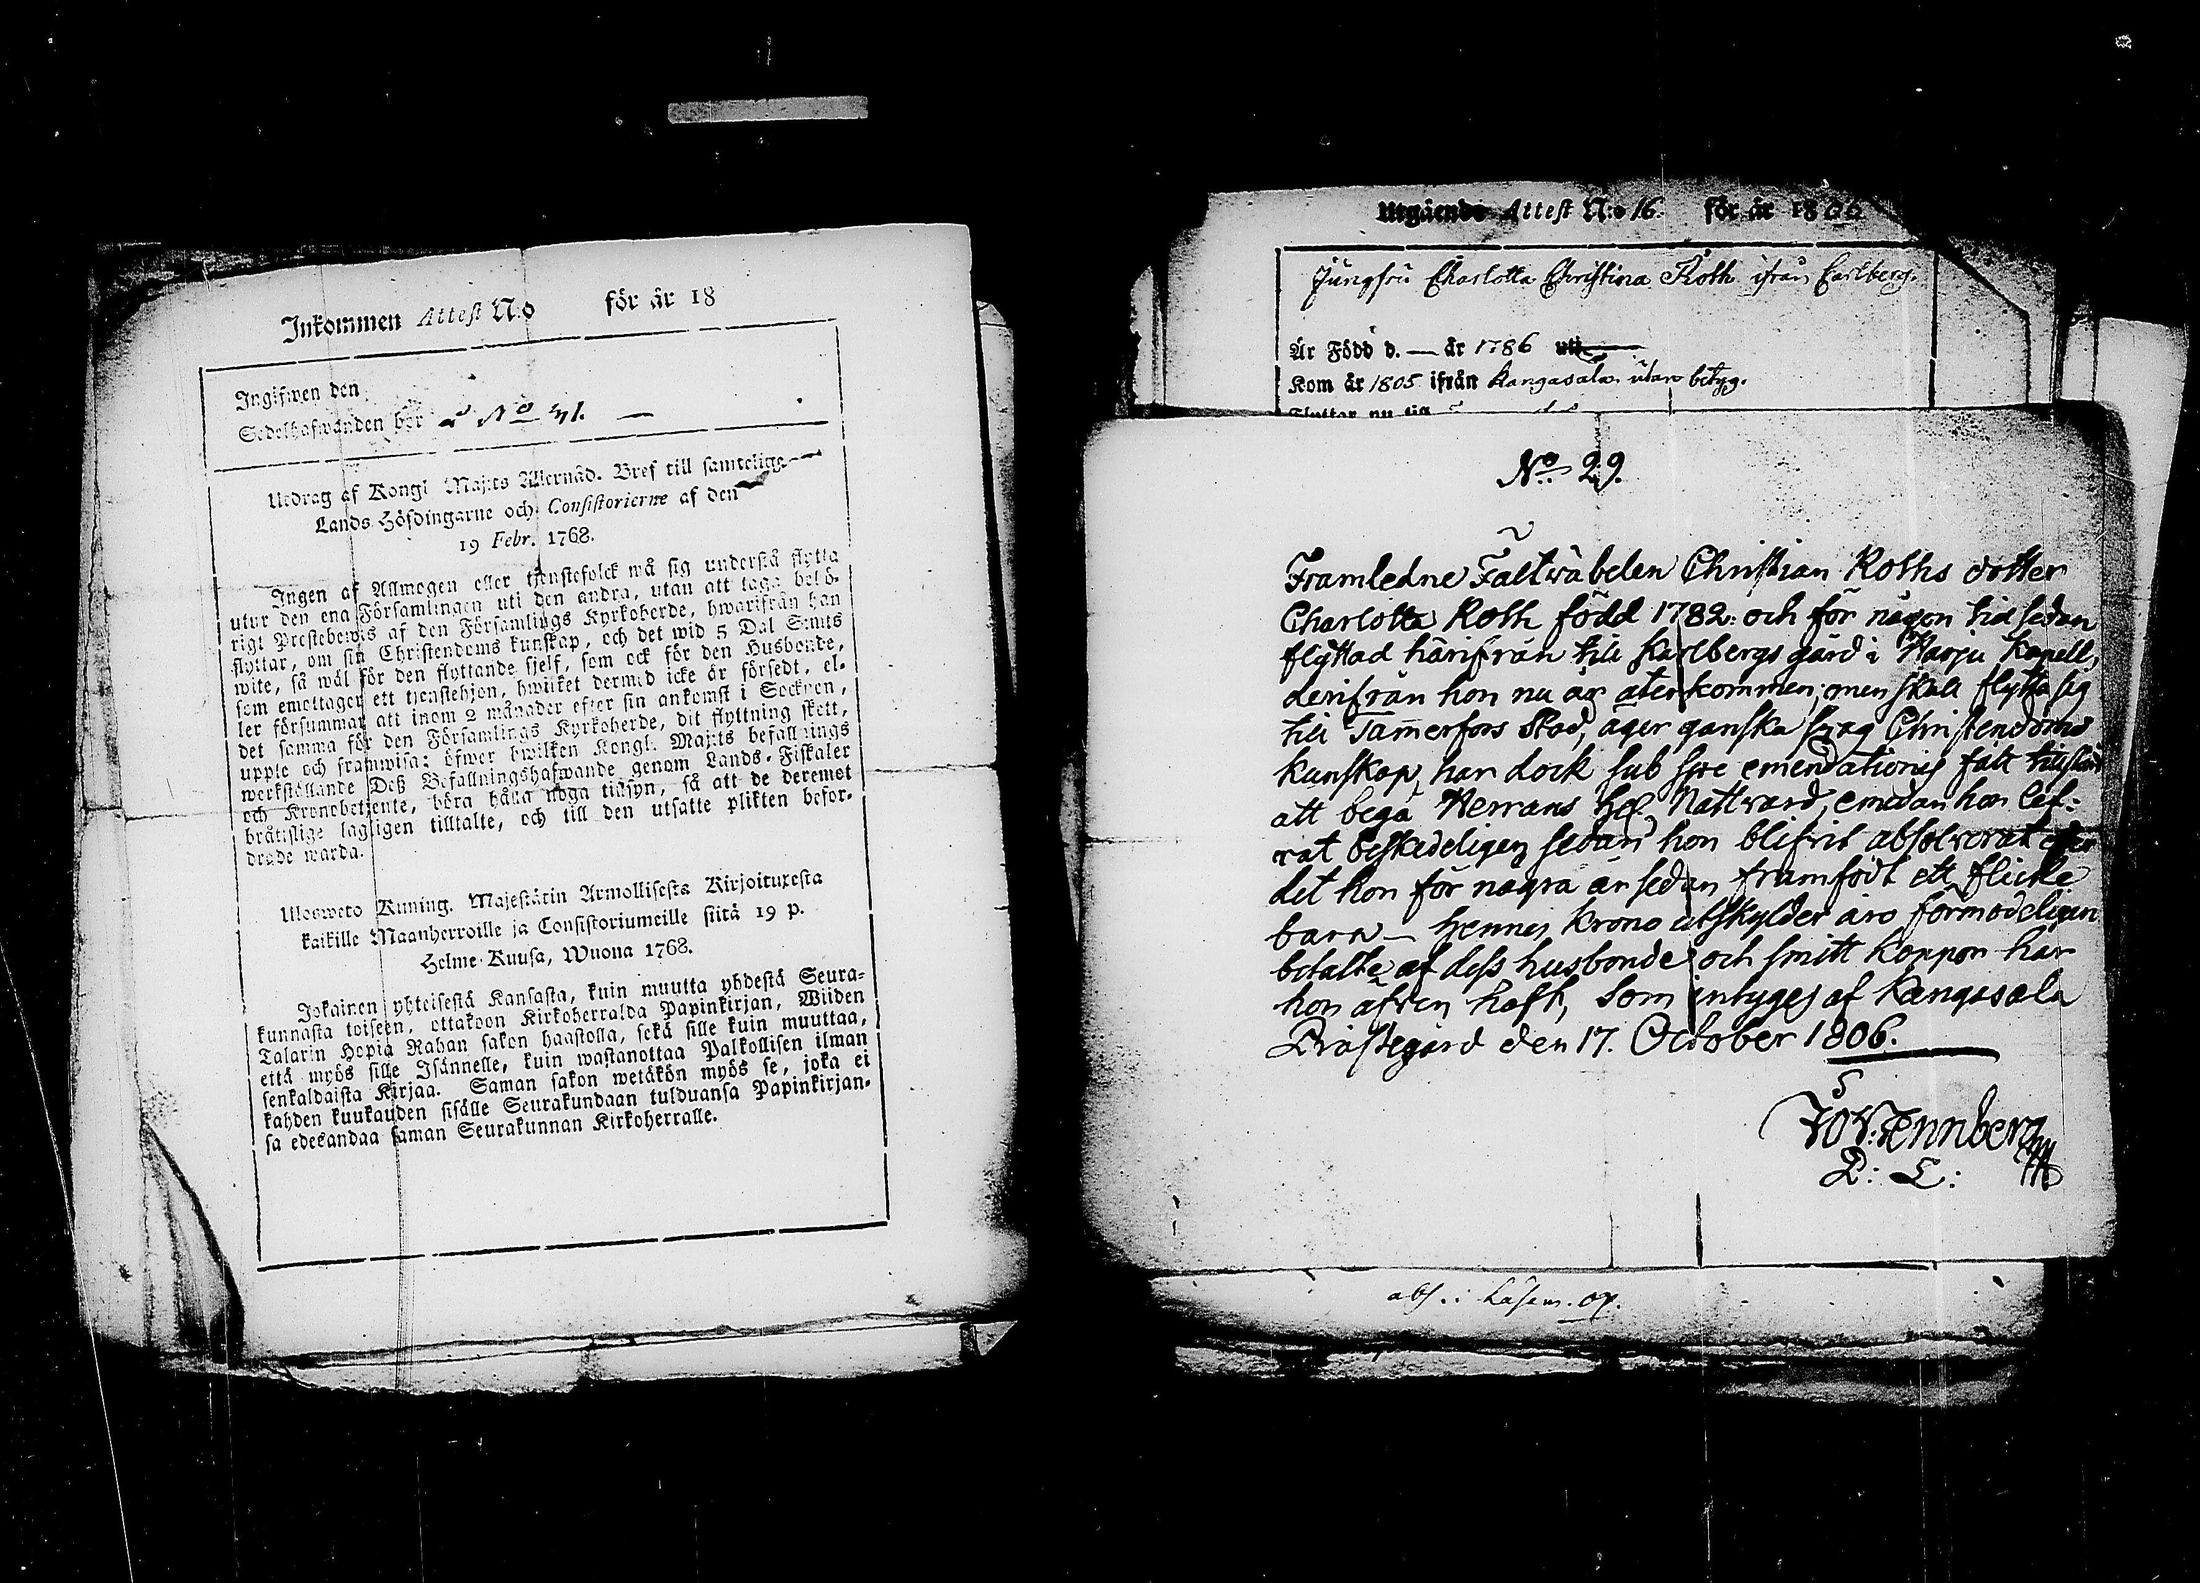 Inkommen Attest N:o för år 18
Ingifwen den
Sedelhafwanden bor å No 41.
Utdrag af Kongl Maj:ts Allernåd. Bref till samtelige
Lands Höfdingarne och Consistorierne af den
19 Febr. 1768.
Ingen af Allmogen eller tjenstefolck må sig understå flytta
utur den ena Församlingen uti den andra, utan att taga behö-
rigt Prestebewis af den Församlings Kyrkoherde, hwarifrån han
flyttar, om sin Christendoms kunskap, och det wid 5 Dal S:mts
wite, så wäl för den flyttande sjelf, som ock för den Husbonde,
som emottager ett tjenstehjon, hwilket dermed icke är försedt, el-
ler försummar att inom 2 månader efter sin ankomst i Socknen,
det samma för den Församlings Kyrkoherde, dit flyttning skett,
upple och framwisa: öfwer hwilken Kongl. Maj:ts befallnings
werkställande Deß Befallningshafwande genom Lands-Fiskaler
och Kronobetjente, böra hålla noga tillsyn, så att de deremot
brätslige lagligen tilltalte, och till den utsatte plikten befor-
drade warda.
Ulosweto Kuning. Majestätin Armollisesta Kirjoituxesta
kaikille Maanherroille ja Consistoriumeille siitä 19 p.
Helme-Kuusa, Wuona 1768.
Jokainen yhteisestä Kansasta, kuin muutta yhdestä Seura-
kunnasta toiseen, ottakoon Kirkoherralda Papinkirjan, Wiiden
Talarin Hopia Rahan sakon haastolla, sekä sille kuin muuttaa,
että myös sille Isännelle, kuin wastanottaa Palkollisen ilman
senkaldaista Kirjaa. Saman sakon wetäkön myös se, joka ei
kahden kuukauden sisälle Seurakundaan tulduansa Papinkirjan-
sa edesandaa saman Seurakunnan Kirkoherralle.
Utgående Attest N:o 16. för år 1806
Jungfru Charlotta Christina Roth ifrån Carlberg.
Är Född d. — år 1786 uti
Kom år 1805 ifrån Kangasala utan betyg.
Flyttar nu sig
No. 29.
Framledne Fältwäbelen Christian Roths dotter
Charlotta Roth född 1782: och för någon tid sedan
flyttad härifrån till Karlbergs gård i Harju Kapell,
derifrån hon nu är återkommen; men skall flytta sig
till Tam̄erfors Stad, äger ganska swag Christendoms
kunskap, har dock sub spe emendationis fått tillstånd
att begå Herrans Hel. Nattward, emedan hon lef-
wat beskedeligen sedan hon blifwit absolverat efter
det hon för några år sedan framfödt ett flicke
barn — hennes krono utskylder äro förmodeligen
betalte af dess husbonde och smitt koppor har
hon äfwen haft, som intyges af Kangasala
Prästegård den 17. October 1806.
P: L:
abs. : Läsem. op.